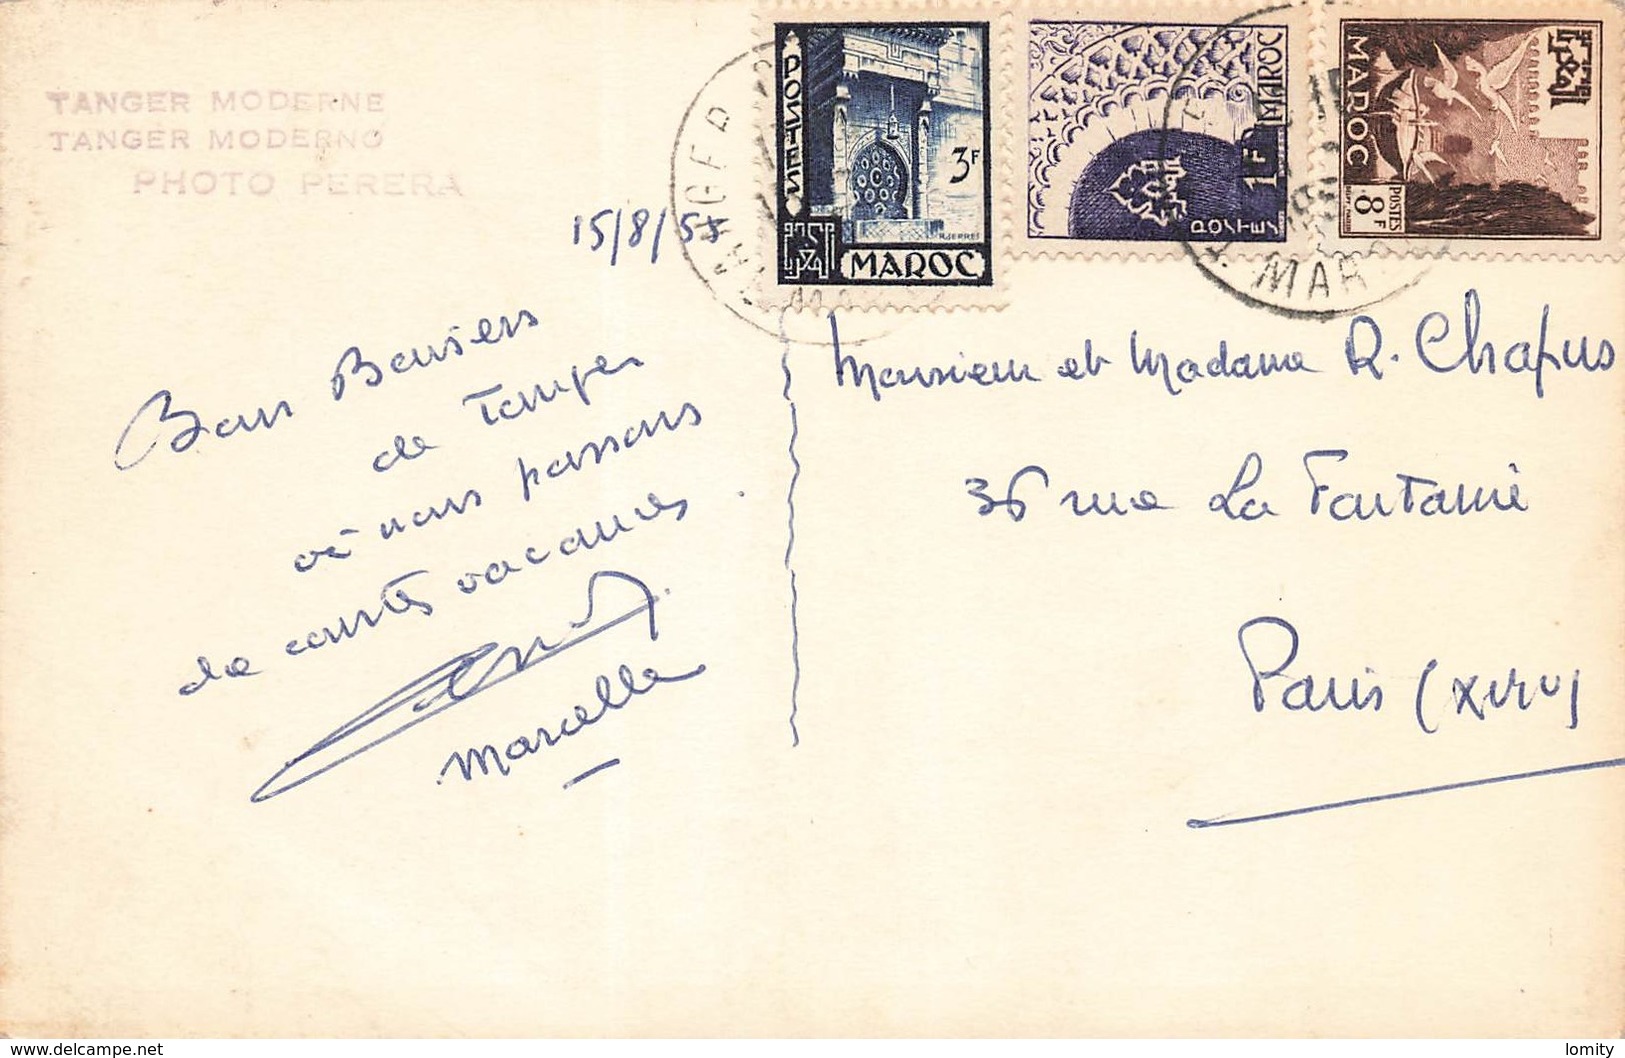 TANGER MODERNE
TANGER MODERNO
PHOTO PERERA
15/8/54
Bons Baisers
de Tanger
où nous passons
de courtes vacances.
Marcelle
POSTES
3F
MAROC
1F MAROC
POSTES
MAROC
POSTES
8F
TANGER
MAR
Monsieur et Madame R. Chapus
36 rue La Fontaine
Paris (XVIe)
www.delcampe.net
lomity